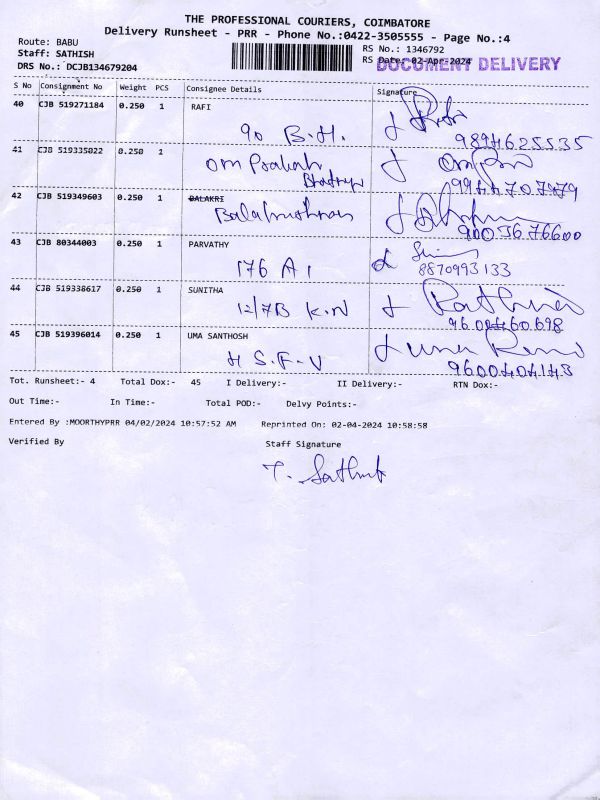 THE PROFESSIONAL COURIERS, COIMBATORE
Delivery Runsheet - PRR - Phone No.:0422-3505555 - Page No.:4
Route: BABU
Staff: SATHISH
DRS No.: DCJB134679204
RS No.: 1346792
RS Date: 02-Apr-2024
DOCUMENT DELIVERY
S No Consignment No Weight PCS Consignee Details Signature
40 CJB 519271184 0.250 1 RAFI
90 B.H.
9894625535
41 CJB 519335022 0.250 1
Om Prakash
42 CJB 519349603 0.250 1 BALAKRI
Balakrishnan
9003676600
43 CJB 80344003 0.250 1 PARVATHY
176 A1
8870993133
44 CJB 519338617 0.250 1 SUNITHA
12/7B K.N
45 CJB 519396014 0.250 1 UMA SANTHOSH
4 S.F-V
9600404143
Tot. Runsheet:- 4 Total Dox:- 45 I Delivery:- II Delivery:- RTN Dox:-
Out Time:- In Time:- Total POD:- Delvy Points:-
Entered By :MOORTHYPRR 04/02/2024 10:57:52 AM Reprinted On: 02-04-2024 10:58:58
Verified By Staff Signature